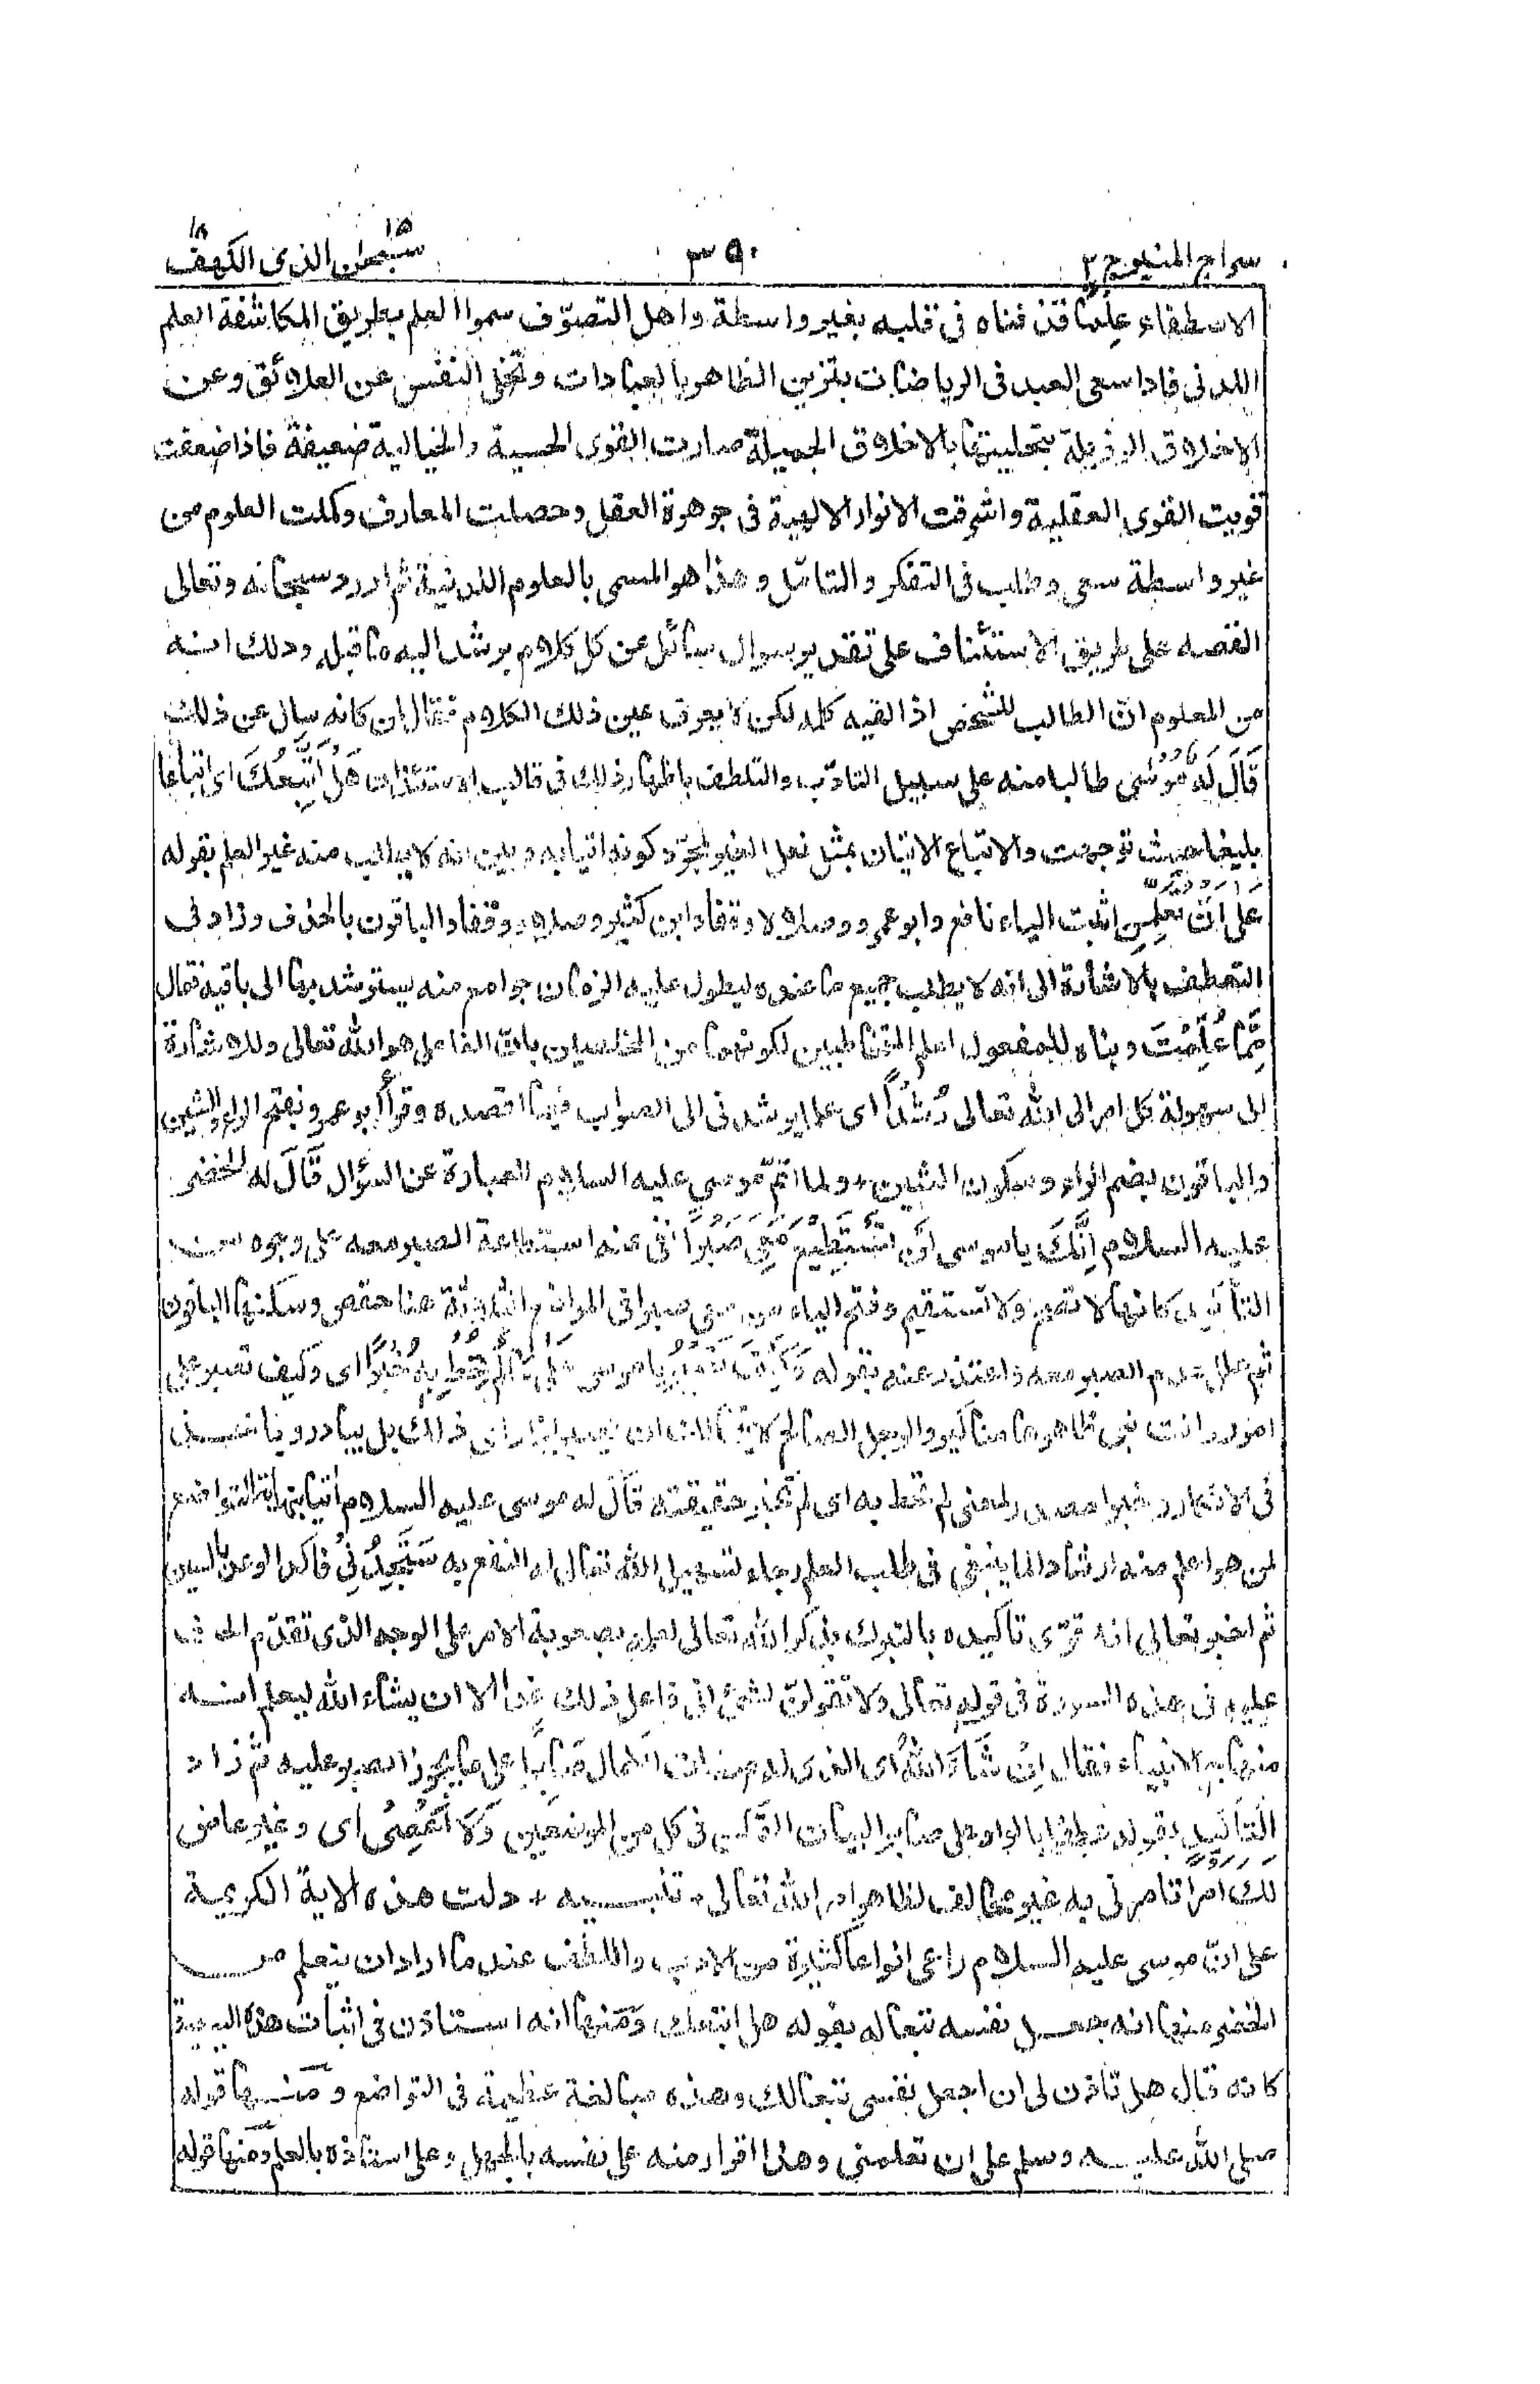 سراج المنير ج ٢
٣٩٠
سبحٰن الذى ١٥ الكهف ١٨
الاصطفاء علما قذفناه فى قلبه بغير واسطة واهل التصوّف سموا العلم بطريق المكاشفة العلم
اللدنى فاذا سعى العبد فى الرياضات بتزين الظاهر بالعبادات وتخلى النفس عن العلائق وعن
الاخلاق الرذيلة بتحليتها بالاخلاق الجميلة صارت القوى الحسية والخيالية ضعيفة فاذا ضعفت
قويت القوى العقلية واشرقت الانوار الالهية فى جوهرة العقل وحصلت المعارف وكملت العلوم من
غير واسطة سعى وطلب فى التفكر والتامّل وهذا هو المسمى بالعلوم اللدنية ثم اورد سبحانه وتعالى
القصه على طريق الاستئناف على تقدير سوال سائل عن كل كلام يرشد اليه ما قبله وذلك انه
من المعلوم انّ الطالب للشخص اذا لقيه كلمه لكن لا يعرف عين ذلك الكلام فقال ان كانه سال عن ذلك
قَالَ لَهُ مُوْسٰى طالبا منه على سبيل التادّب والتلطف باظهار ذلك فى قالب الاستئذان هَلْ اَتَّبِعُكَ اى اتباعا
بليغا حيث توجهت والاتباع الاتيان بمثل فعل الغير لمجرّد كونه اتيا به وبين انه لا يطلب منه غير العلم بقوله
عَلٰى اَنْ تُعَلِّمَنِ اثبت الياء نافع وابو عمرو وصلا لا وقفا وابن كثير وصلا ووقفا والباقون بالحذف وزاد فى
التعطف بالاشارة الى انه لا يطلب جميع ما عنده ليطول عليه الزمان جوامع منه يسترشد بها الى باقيه فقال
مِمَّا عُلِّمْتَ وبناه للمفعول لعلم المتخاطبين لكونهما من المخلصين بانّ الفاعل هو الله تعالى وللاشارة
الى سهولة كل امر الى الله تعالى رُشْدًا اى علما يرشدنى الى الصواب فيما اقصده وقرأ ابو عمرو بفتح الراء والشين
والباقون بضم الراء وسكون الشين + ولما اتمّ موسى عليه السلام العبارة عن السؤال قَالَ له الخضر
عليه السلام اِنَّكَ يا موسى لَنْ تَسْتَطِيْعَ مَعِىَ صَبْرًا نفى عنه استطاعة الصبر معه على وجوه من
التأكيد كانها لا تصح ولا تستقيم وفتح الياء من معى صبرا فى المواضع الثلاثة هنا حفص وسكنها الباقون
ثم علل عدم الصبر معه واعتذر عنه بقوله وَكَيْفَ تَصْبِرُ يا موسى عَلٰى مَا لَمْ تُحِطْ بِهٖ خُبْرًا اى وكيف تصبر على
امور وانت نبى ظاهرها مناكير والرجل الصالح لا يتمالك ان يصبر اذا راى ذلك بل يبادر وياخذ
فى الانكار وخبرا مصدر لمعنى لم تحط به اى لم تخبر حقيقته قَالَ له موسى عليه السلام اتيا بنهاية التواضع
لمن هو اعلم منه ارشادا لما ينبغى فى طلب العلم رجاء تسهيل الله تعالى له النفع به سَتَجِدُنِىْ فاكد الوعد بالسين
ثم اخبر تعالى انه قوّى تاكيده بالتبرك بذكر الله تعالى لعلمه بصعوبة الامر على الوجه الذى تقدّم الحث
عليه فى هذه السورة فى قوله تعالى ولا تقولنّ لشئ انى فاعل ذلك غدا الا ان يشاء الله ليعلم انه
منهاج الانبياء فقال اِنْ شَآءَ اللهُ اى الذى له صفات الكمال صَابِرًا على ما يجوز الصبر عليه ثم زاد
التأكيد بقوله عطفا بالواو على صابرا لبيان التمكن فى كل من الموضعين وَلَآ اَعْصِىْ اى وغير عاص
لَكَ اَمْرًا تامرنى به غير مخالف لظاهر امر الله تعالى + تنبيه + دلت هذه الاية الكريمة
على انّ موسى عليه السلام راعى انواعا كثيرة من الادب واللطف عند ما اراد ان يتعلم من
الخضر منها انه جعل نفسه تبعا له بقوله هل اتبعك ومنها انه استاذن فى اثبات هذه التبعية
كانه قال هل تاذن لى ان اجعل نفسى تبعا لك وهذه مبالغة عظيمة فى التواضع ومنها قوله
صلى الله عليه وسلم على ان تعلمنى وهذا اقرار منه على نفسه بالجهل وعلى استاذه بالعلم ومنها قوله